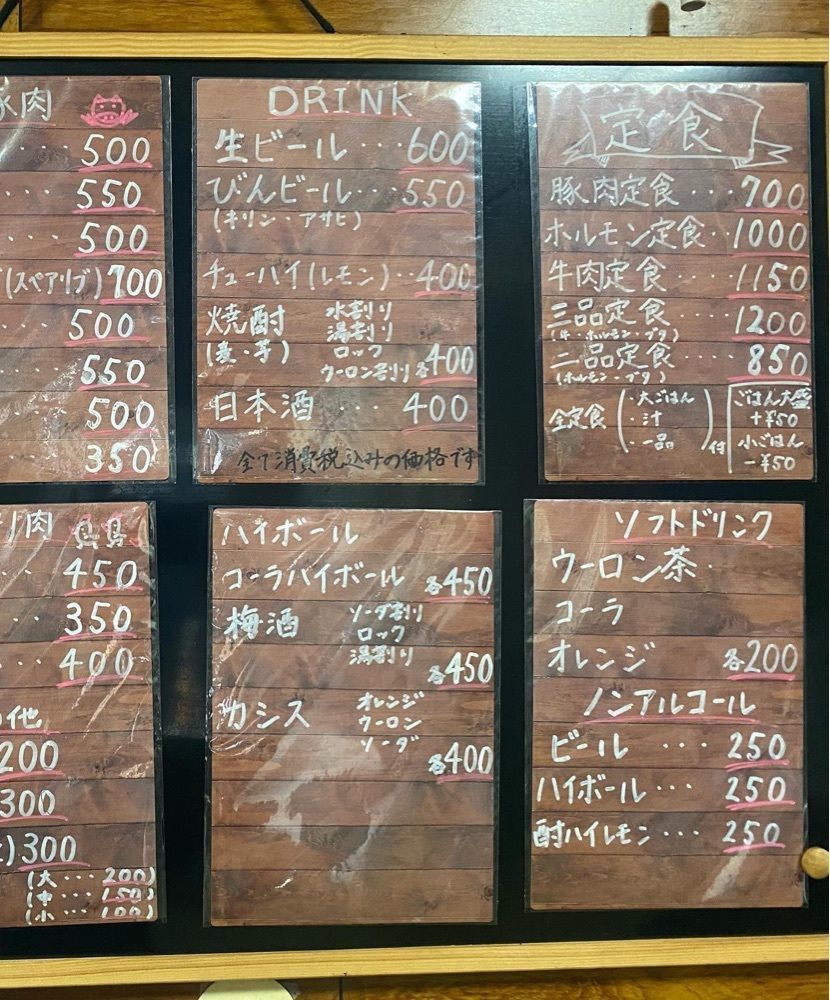 豚肉
・・・ 500
・・・ 550
・・ 500
(スペアリブ) 700
・・ 500
・・ 550
・・ 500
・・ 350
DRINK
生ビール ・・・ 600
びんビール ・・・ 550
(キリン・アサヒ)
チューハイ(レモン) ・・ 400
焼酎 水割り
(麦・芋) 湯割り
ロック
ウーロン割り 各400
日本酒 ・・・ 400
全て消費税込みの価格です
定食
豚肉定食 ・・・ 700
ホルモン定食 ・・ 1000
牛肉定食 ・・・ 1150
三品定食 ・・・ 1200
(牛・ホルモン・ブタ)
二品定食 ・・・ 850
(ホルモン・ブタ)
全定食 (・大ごはん ・汁 ・一品) 付
ごはん大盛
+¥50
小ごはん
-¥50
肉
・・・ 450
・・・ 350
・・・ 400
の他
200
300
) 300
(大 ・・・ 200)
(中 ・・・ 150)
(小 ・・・ 100)
ハイボール
コーラハイボール 各450
梅酒 ソーダ割り
ロック
湯割り
各450
カシス オレンジ
ウーロン
ソーダ
各400
ソフトドリンク
ウーロン茶
コーラ
オレンジ 各200
ノンアルコール
ビール ・・・ 250
ハイボール ・・・ 250
酎ハイレモン ・・・ 250